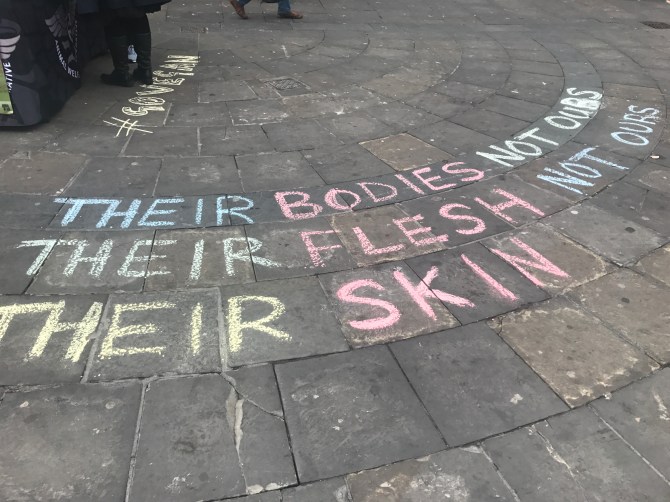 #GO VEGAN
THEIR BODIES NOT OURS
THEIR FLESH NOT OURS
THEIR SKIN